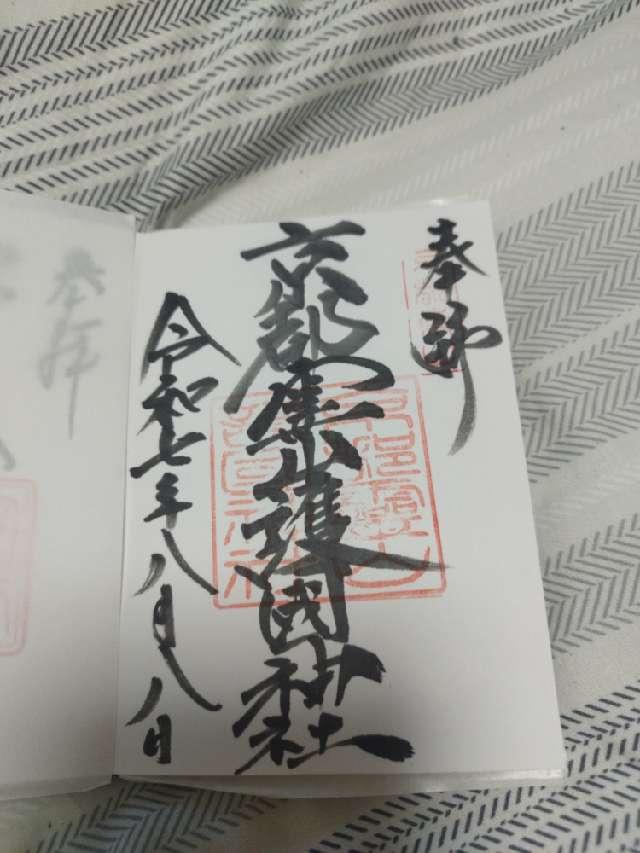 奉拝
京都霊山護國神社
令和七年八月八日
奉拝